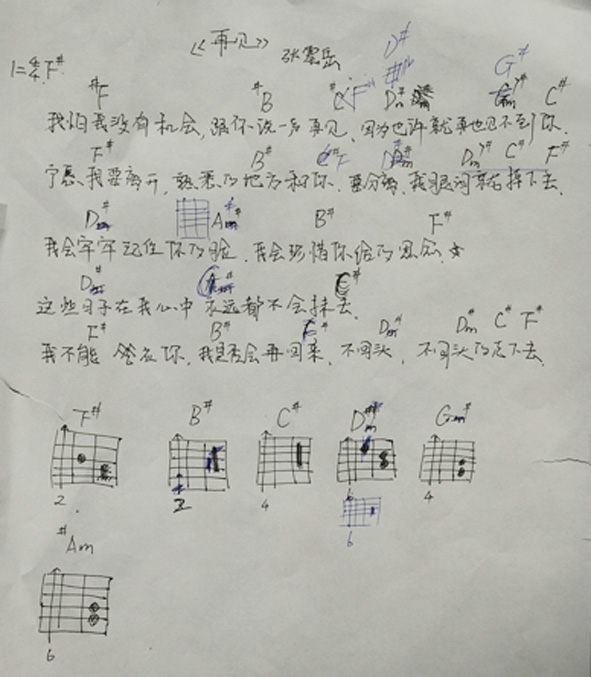 《再见》 张震岳
1=4/4 F#
#F #B F Dm# Gm# C#
我怕我没有机会,跟你说一声再见,因为也许就再也见不到你.
F# B# F Dm Dm# C# F#
我要离开,熟悉的地方和你.要分离,我眼泪就掉下去.
Dm# Am# B# F#
我会牢牢记住你的脸.我会珍惜你给的思念.
Dm# C#
这些日子在我心中永远都不会抹去.
F# B# Dm# Dm# C# F#
我不能答应你.我是否会再回来.不回头,不回头的走下去.
F# B# C# Dm# Gm#
2 2 4 6 4
6
#Am
6